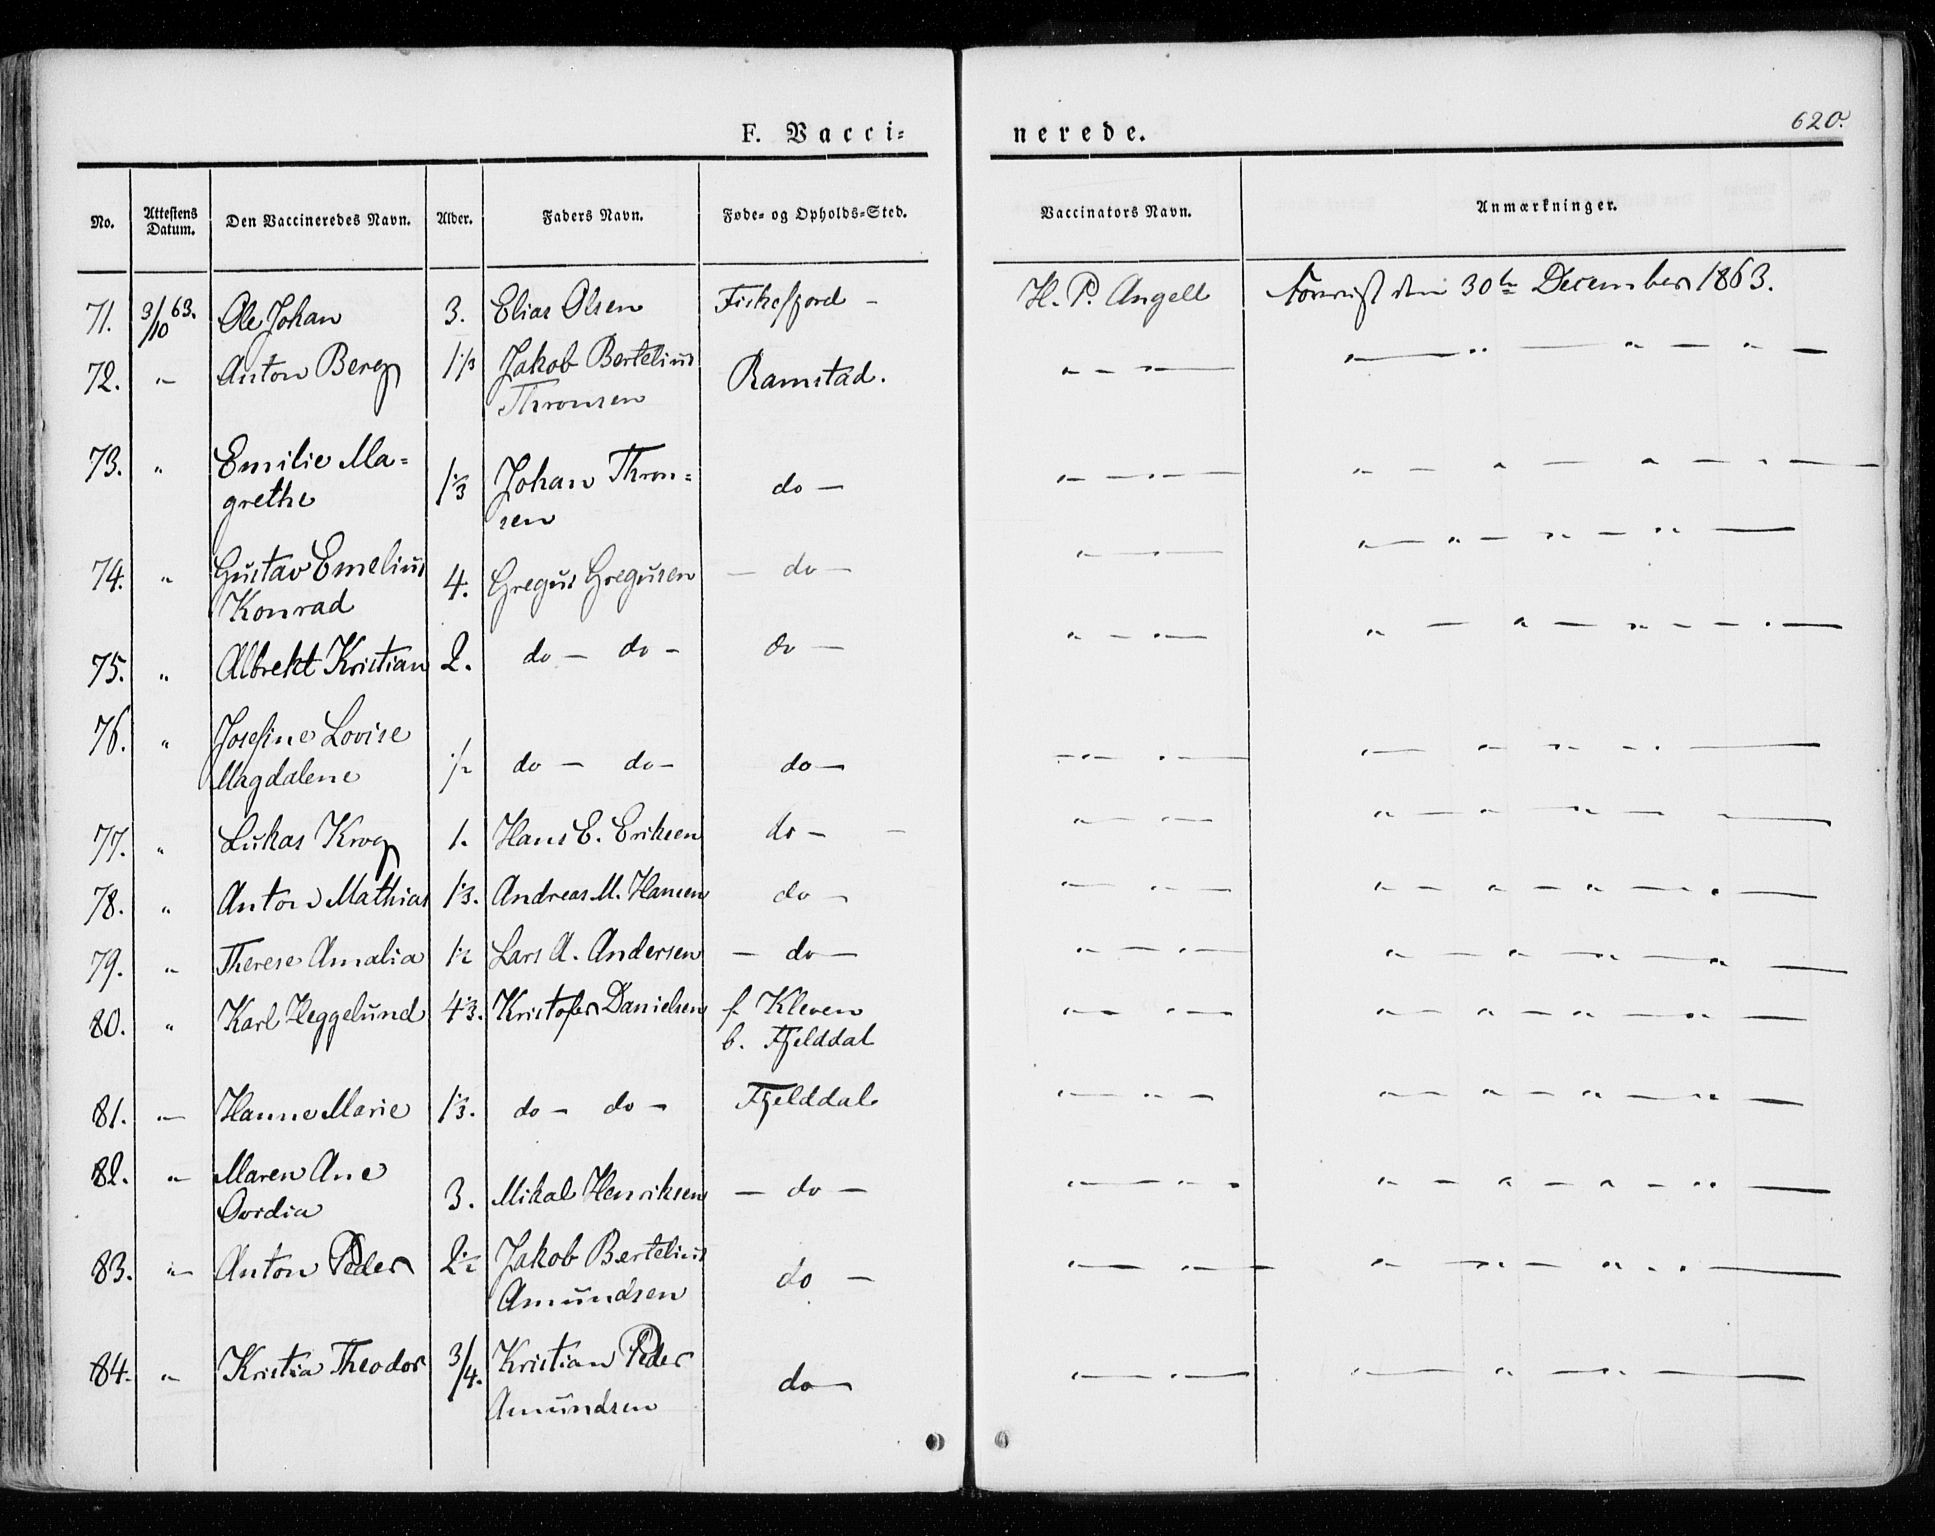 F. Vacci-
nerede.
620.
No. Attestens Datum. Den Vaccineredes Navn. Alder. Faders Navn. Føde- og Opholds-Sted. Vaccinators Navn. Anmærkninger.
71. 3/10 63. Ole Johan 3. Elias Olsen Fiskefjord - H. P. Angell Foreviist den 30te December 1863.
72. " Anton Berg 1 1/3 Jakob Bertelius
Thronsen Ramstad.
73. " Emilie Ma-
grethe 1 1/3 Johan Thron-
sen do -
74. " Gustav Emelius
Konrad 4. Gregus Gregusen - do -
75. " Albrekt Kristian 2. do - do - do -
76. " Josefine Lovise
Magdalene 1/2 do - do - do -
77. " Lukas Krog 1. Hans E. Eriksen do -
78. " Anton Mathias 1 1/3. Andreas M. Hansen do -
79. " Therese Amalia 1 1/2 Lars A. Andersen - do -
80. " Karl Heggelund 4 1/3. Kristofer Danielsen f. Kleven
b. Fjelddal
81. " Hanne Marie 1 1/3. do - do - Fjelddal
82. " Maren Ane
Ovidia 3. Mikal Henriksen - do -
83. " Anton Peder 2 1/2 Jakob Bertelius
Amundsen do -
84. " Kristia Theodor 3/4. Kristian Peder
Amundsen do -